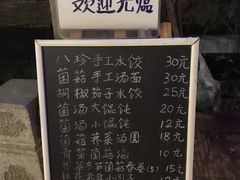 欢迎光临
八珍手工水饺 30元
菌菇手工汤面 30元
胡椒茄子水饺 25元
菌汤大馄饨 20元
菌汤小馄饨 12元
菌菇荠菜汤圆 18元
青菜菌菇汤 10元
春卷(5) 15元